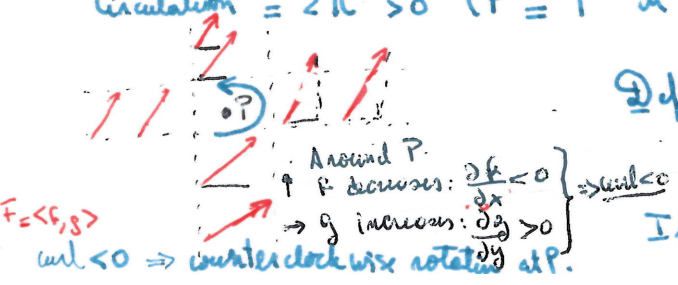 Circulation = 2π > 0 (
P
Def
Around P.
↑ f decreases: ∂f/∂x < 0
⇒ curl<0
→ g increases: ∂g/∂y > 0
F = <f, g>
I
curl < 0 ⇒ counterclockwise rotation at P.